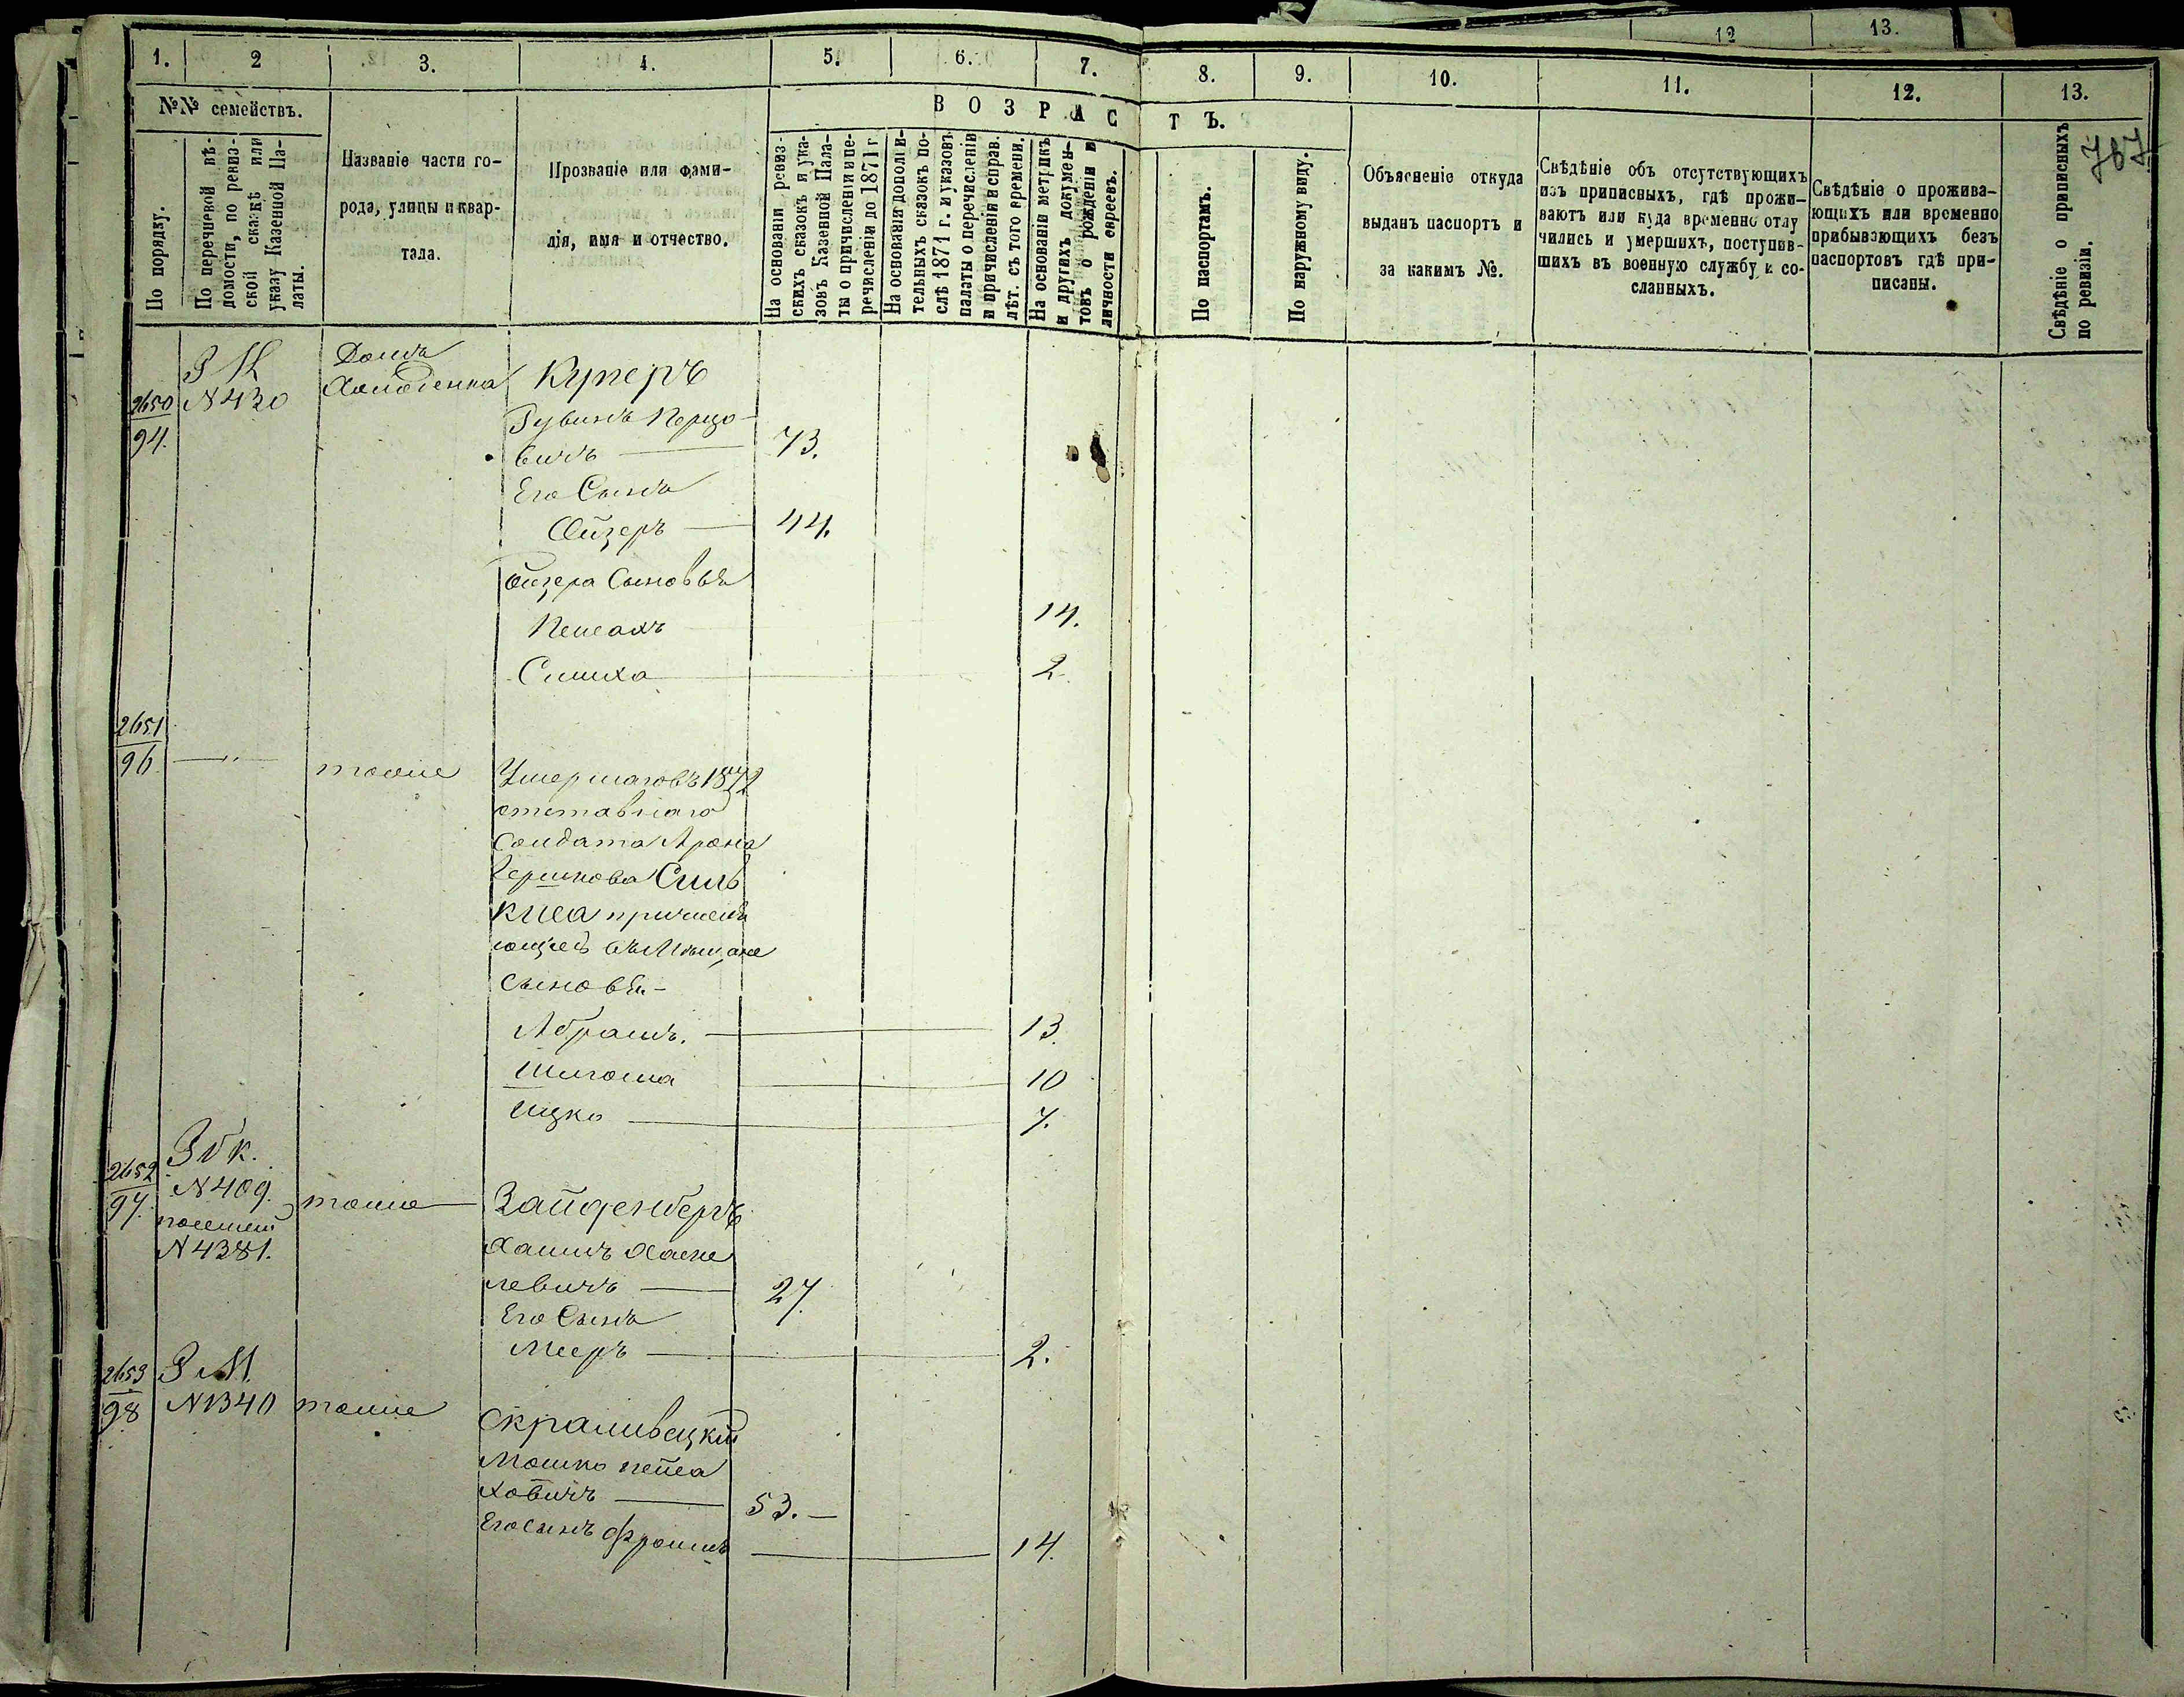 12 13.
1. 2 3. 4. 5. 6. 7. 8. 9. 10. 11. 12. 13.
767
№№ семействъ.
По порядку.
По перечневой вѣ-
домости, по ревиз-
ской сказкѣ или
указу Казенной Па-
латы.
Названіе части го-
рода, улицы и квар-
тала.
Прозваніе или фами-
лія, имя и отчество.
ВОЗРАСТЪ.
На основаніи ревиз-
скихъ сказокъ и ука-
зовъ Казенной Пала-
ты о причисленіи и пе-
речисленіи до 1871 г
На основаніи дополни-
тельныхъ сказокъ по-
слѣ 1871 г. и указовъ
палаты о перечисленіи
и причисленіи и справ.
лѣт. съ того времени.
На основаніи метрикъ
и другихъ докумен-
товъ о рожденіи и
личности евреевъ.
По паспортамъ.
По наружному виду.
Объясненіе откуда
выданъ паспортъ и
за какимъ №.
Свѣдѣніе объ отсутствующихъ
изъ приписныхъ, гдѣ прожи-
ваютъ или куда временно отлу
чились и умершихъ, поступив-
шихъ въ военную службу и со-
сланныхъ.
Свѣдѣніе о прожива-
ющихъ или временно
прибывающихъ безъ
паспортовъ гдѣ при-
писаны.
Свѣдѣніе о приписныхъ
по ревизіи.
2650
94.
З М
N 430
Домъ
Холоденка
Куперъ
Рувинъ Перцо-
вичъ — 73.
Его Сынъ
Ойзеръ — 44.
Ойзера Сыновья
Пейсахъ 14.
Симха 2.
2651
96 — " — тоже
Умершаго въ 1872
отставнаго
Солдата Арона
Гершкова Силь
киса
въ Мѣщане
Сыновья -
Абрамъ. 13.
Шлома 10
Ицко 7.
2652
97.
З б к.
N 409.
посемей
N 4381.
тоже
Зайденбергъ
Хаимъ Хаске
левичъ — 27.
Его Сынъ
Мееръ — 2.
2653
98
З М.
N 1340 тоже
Скраливецкій
Мошко пейса
ховичъ — 53. —
Его сынъ Фроимъ 14.